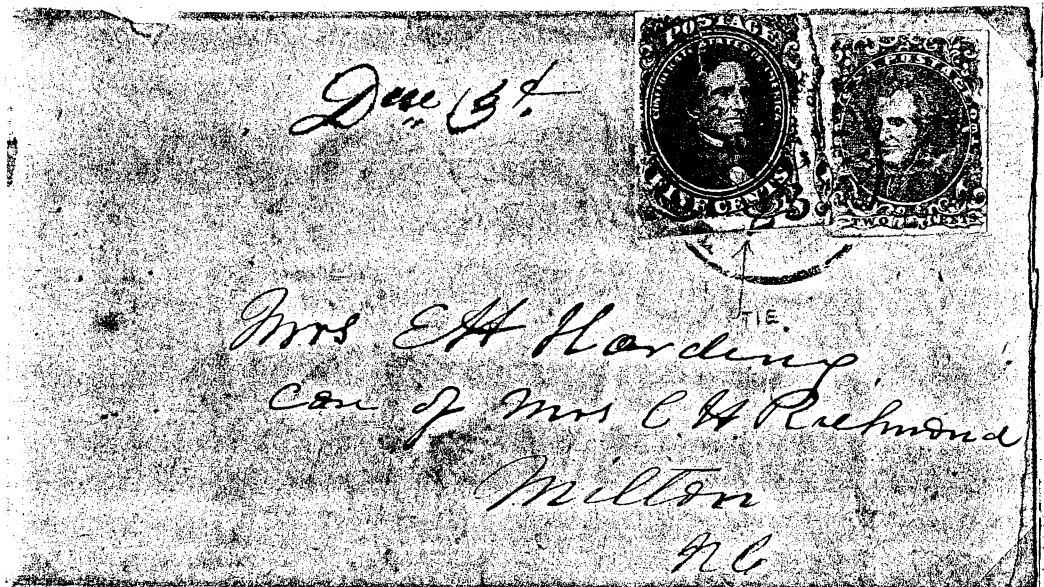 POSTAGE
CONFEDERATE STATES
FIVE CENTS
POSTAGE
TWO CENTS
Due 3d
TIE.
Mrs E H Harding
Care of Mrs C H Richmond
Milton
NC